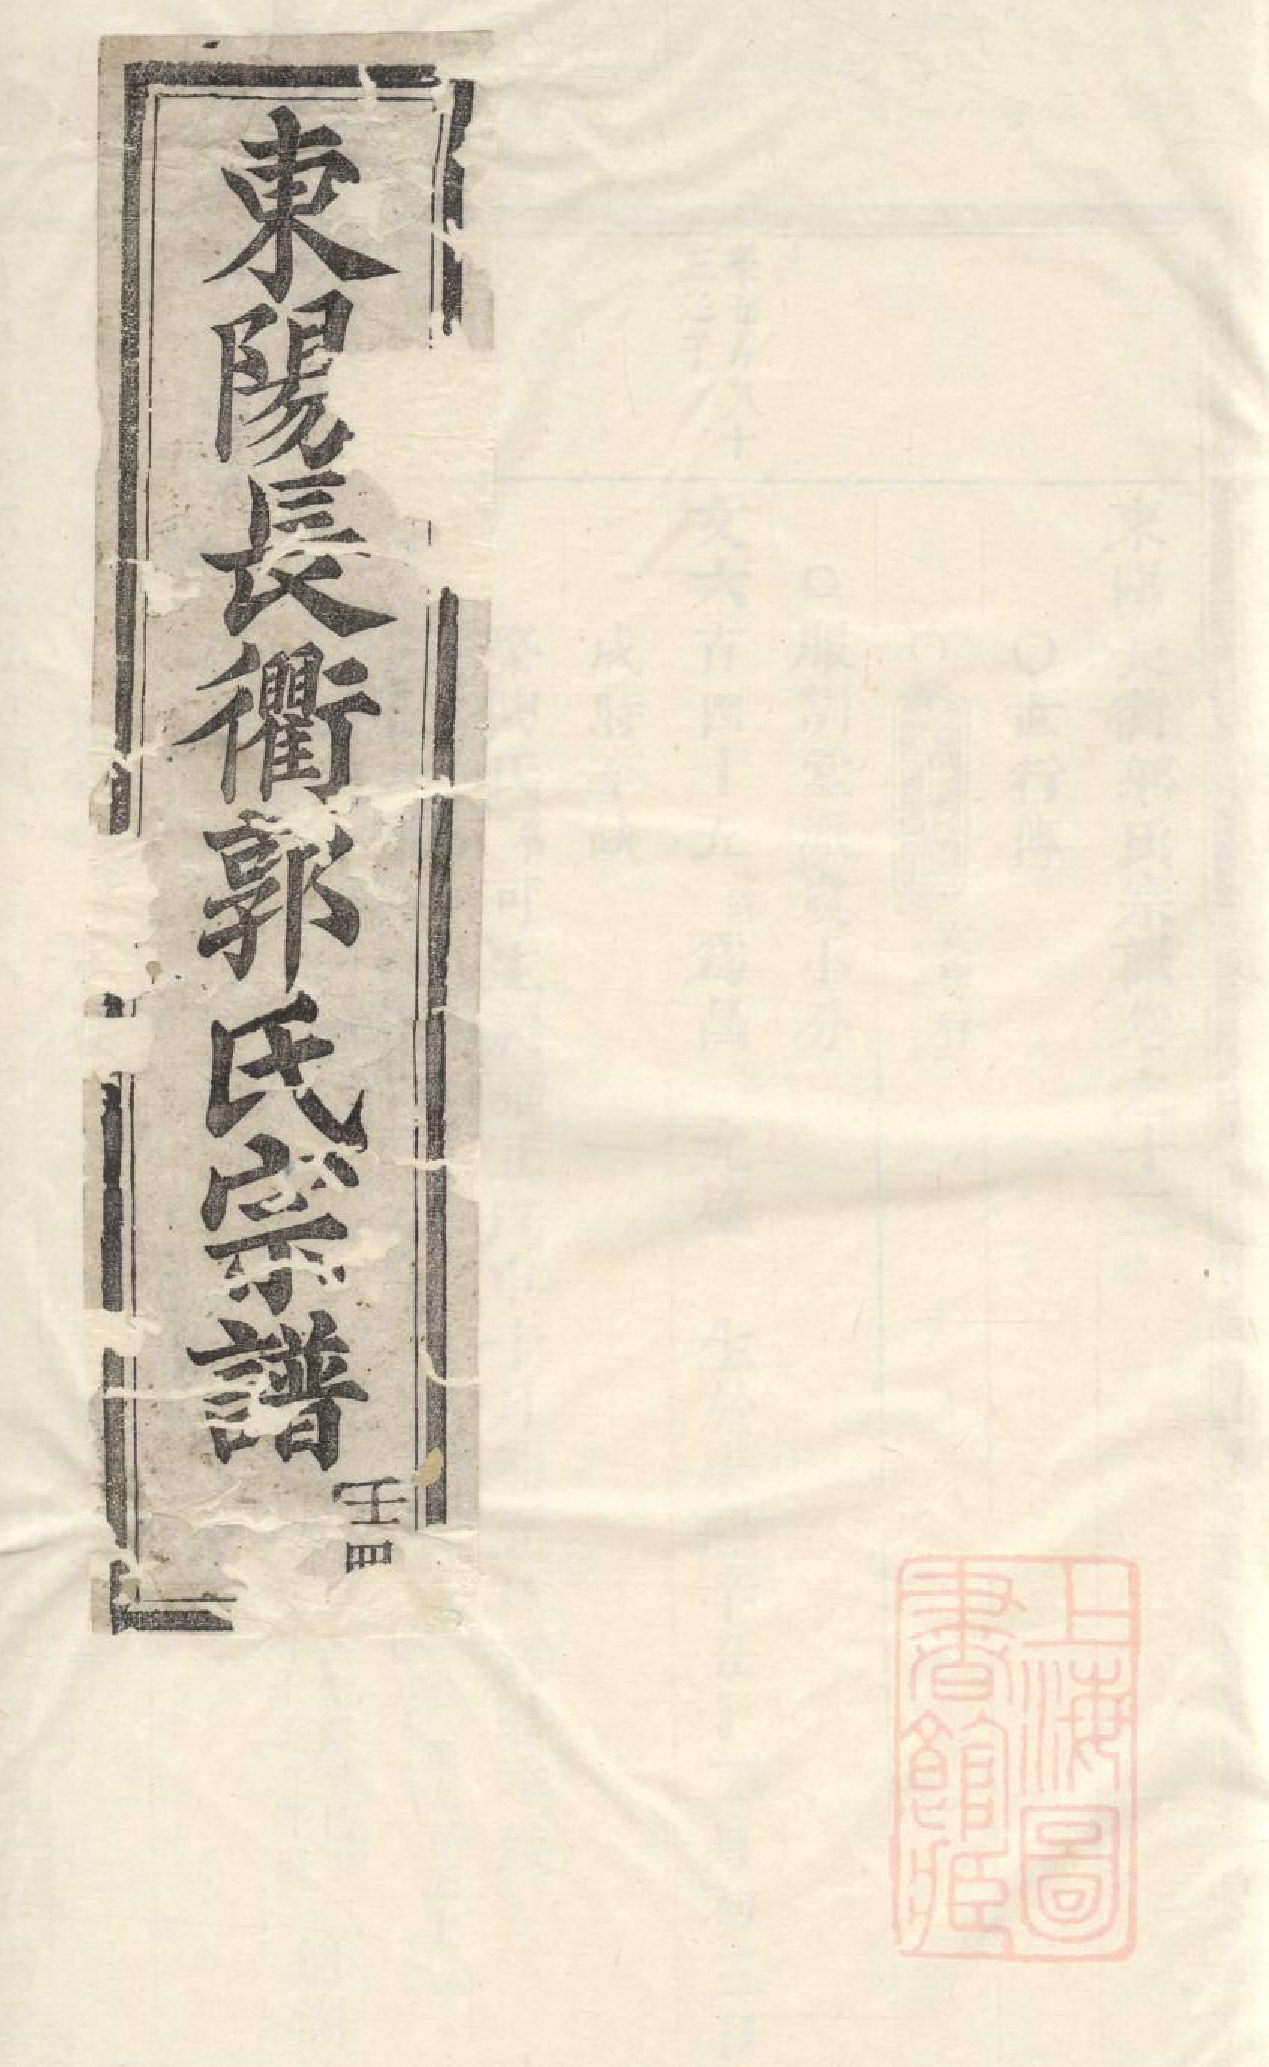 東陽長衢郭氏宗譜
壬四
上海圖
書館藏